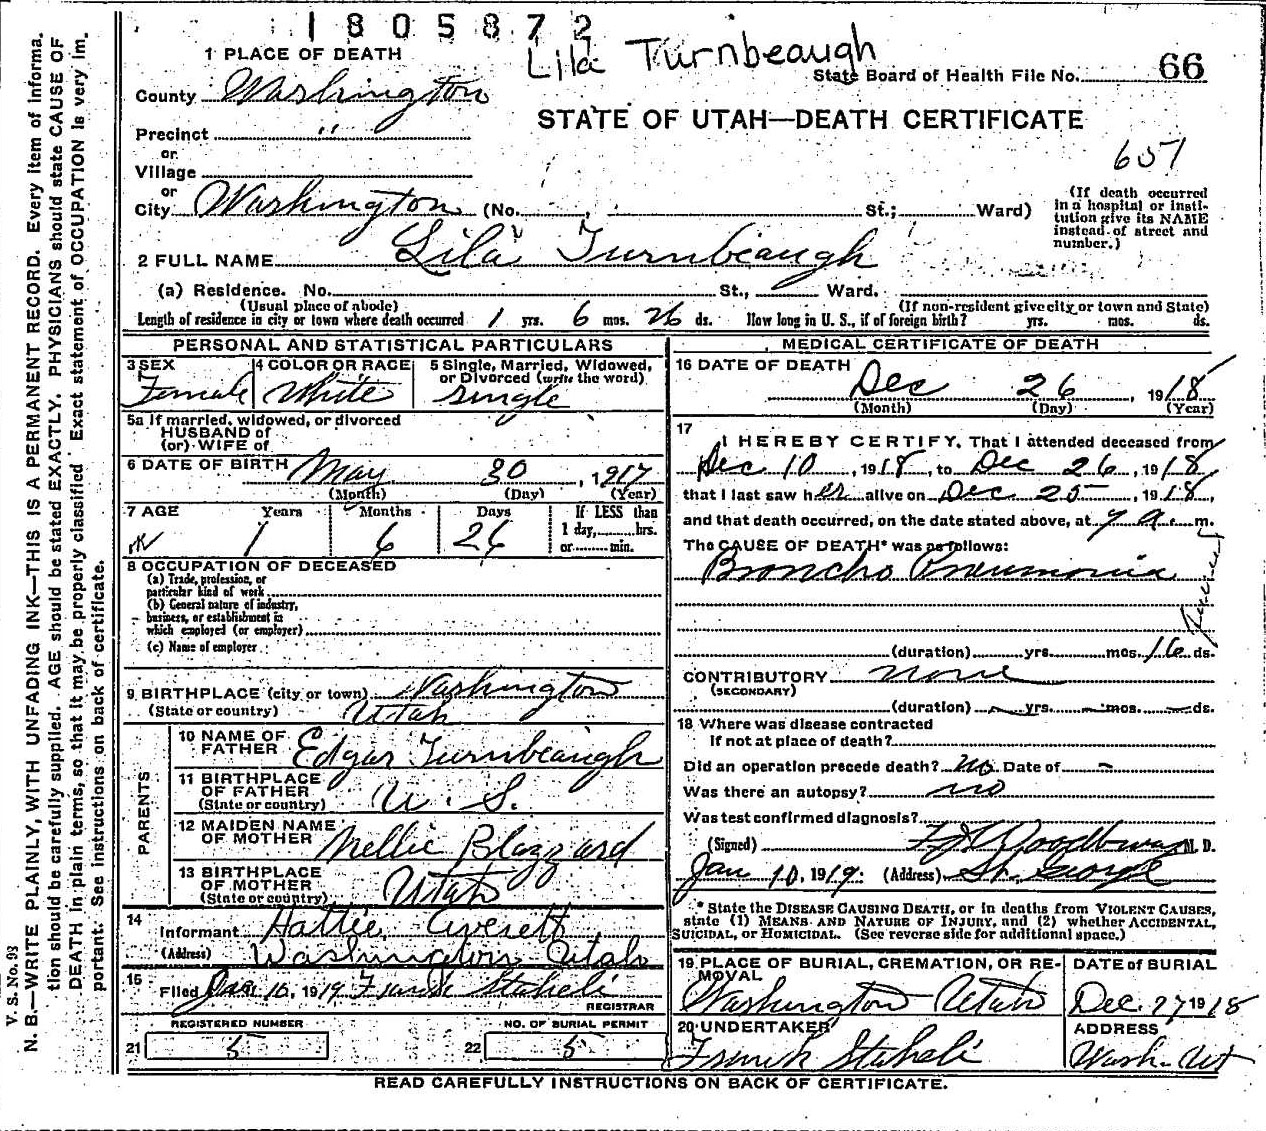 1805872
Lila Turnbeaugh
1 PLACE OF DEATH
State Board of Health File No. 66
County Washington
STATE OF UTAH—DEATH CERTIFICATE
Precinct "
607
or
Village
or
City Washington (No. , St.; Ward)
(If death occurred in a hospital or insti-
tution give its NAME
instead of street and
number.)
2 FULL NAME Lila Turnbeaugh
(a) Residence. No. St., Ward.
(Usual place of abode) (If non-resident give city or town and State)
Length of residence in city or town where death occurred 1 yrs. 6 mos. 26 ds. How long in U. S., if of foreign birth? yrs. mos. ds.
PERSONAL AND STATISTICAL PARTICULARS
3 SEX
Female
4 COLOR OR RACE
White
5 Single, Married, Widowed,
or Divorced (write the word)
Single
5a If married, widowed, or divorced
HUSBAND of
(or) WIFE of
6 DATE OF BIRTH May 30, 1917
(Month) (Day) (Year)
7 AGE Years Months Days If LESS than
1 day, hrs.
or min.
1 6 26
8 OCCUPATION OF DECEASED
(a) Trade, profession, or
particular kind of work
(b) General nature of industry,
business, or establishment in
which employed (or employer)
(c) Name of employer
9 BIRTHPLACE (city or town) Washington
(State or country) Utah
PARENTS
10 NAME OF
FATHER Edgar Turnbeaugh
11 BIRTHPLACE
OF FATHER
(State or country) U. S.
12 MAIDEN NAME
OF MOTHER Nellie Blazzard
13 BIRTHPLACE
OF MOTHER
(State or country) Utah
14
Informant Hattie Averett
(Address) Washington Utah
15
Filed Jan 10, 1919 Frank Staheli
REGISTRAR
REGISTERED NUMBER
21 5
NO. OF BURIAL PERMIT
22 5
MEDICAL CERTIFICATE OF DEATH
16 DATE OF DEATH
Dec 26, 1918
(Month) (Day) (Year)
17
I HEREBY CERTIFY, That I attended deceased from
Dec 10, 1918, to Dec 26, 1918
that I last saw her alive on Dec 25, 1918,
and that death occurred, on the date stated above, at 9 a. m.
The CAUSE OF DEATH* was as follows:
Broncho Pneumonia
(duration) yrs. mos. 16 ds.
CONTRIBUTORY none
(SECONDARY)
(duration) — yrs. — mos. — ds.
18 Where was disease contracted
If not at place of death?
Did an operation precede death? no Date of –
Was there an autopsy? no
Was test confirmed diagnosis?
(Signed) M. D.
Jan 10, 1919. (Address) St. George
* State the DISEASE CAUSING DEATH, or in deaths from VIOLENT CAUSES,
state (1) MEANS AND NATURE OF INJURY, and (2) whether ACCIDENTAL,
SUICIDAL, or HOMICIDAL. (See reverse side for additional space.)
19 PLACE OF BURIAL, CREMATION, OR RE-
MOVAL
Washington Utah
DATE of BURIAL
Dec. 27 1918
20 UNDERTAKER
Frank Staheli
ADDRESS
Wash. Ut
READ CAREFULLY INSTRUCTIONS ON BACK OF CERTIFICATE.
V. S. No. 93
N. B.—WRITE PLAINLY, WITH UNFADING INK—THIS IS A PERMANENT RECORD. Every item of informa.
tion should be carefully supplied. AGE should be stated EXACTLY. PHYSICIANS should state CAUSE OF
DEATH in plain terms, so that it may be properly classified. Exact statement of OCCUPATION is very im.
portant. See instructions on back of certificate.